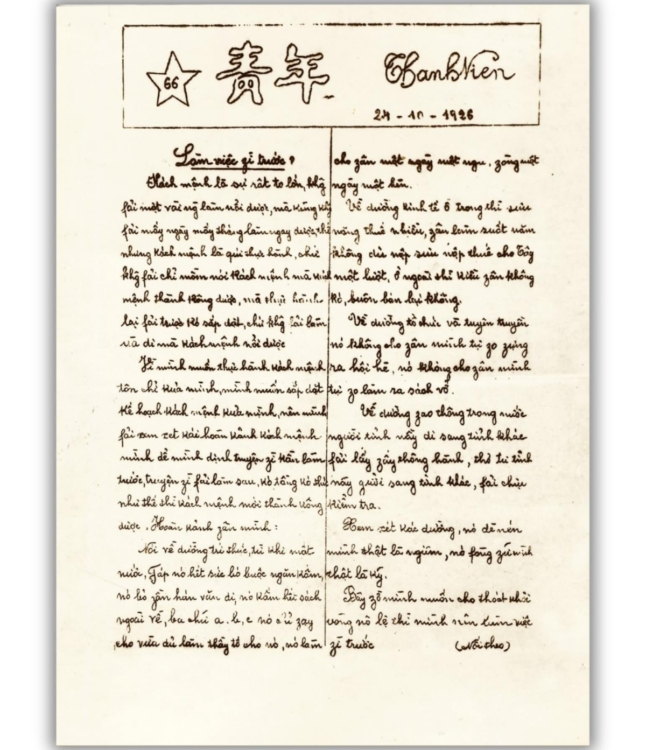 66 青年 Thanh Niên
24 - 10 - 1926
Làm việc zì trước ?
Kách mệnh là sự rất to lớn, khg
fải một vài ng làm nổi được, mà kũng khg
fải mấy ngày mấy tháng làm ngay được, thế
nhưng kách mệnh là quí thực hành, chứ
khg fải chỉ mồm nói kách mệnh mà kách
mệnh thành kông được, mà thực hành
lại fải trước kó sắp đặt, chứ khg fải làm
và đi mà kách mệnh nổi được
Jờ mình muốn thực hành kách mệnh
tôn chỉ kủa mình, mình muốn sắp đặt
kế hoạch kách mệnh kủa mình, nên mình
fải xem xét kái hoàn kảnh kách mệnh
mình để mình định truyện zì kần làm
trước, truyện zì fải làm sau, kó tầng kó thứ
như thế thì kách mệnh mới thành kông
được. Hoàn kảnh zân mình :
Nói về đường trí thức, từ khi mất
nước, Fáp nó hết sức bó buộc ngăn kấm,
nó bỏ zần hán văn đi, nó kấm hết sách
ngoài về, ba chữ a, b, c nó chỉ zạy
cho vừa đủ làm thầy tớ cho nó, nó làm
cho zân mỗi ngày một ngu, zòng một
ngày một hèn.
Về đường kinh tế ở trong thì sưu
nặng thuế nhiều, zân làm suốt năm
không đủ nộp sưu nộp thuế cho Tây
một lượt, ở ngoài thì kiều zân không
kó, buôn bán lại không.
Về đường tổ chức và tuyên truyền
nó không cho zân mình tự zo zựng
ra hội hè, nó không cho zân mình
tự zo làm ra sách vở.
Về đường zao thông trong nước
người tỉnh nầy đi sang tỉnh khác
fải lấy zấy thông hành, thơ từ tỉnh
nầy gưởi sang tỉnh khác, fải chịu
kiểm tra.
Xem xét kác đường, nó đè nén
mình thật là ngiêm, nó fòng zữ mình
thật là kỹ.
Bây zờ mình muốn cho thoát khỏi
vòng nô lệ thì mình nên làm việc
zì trước (Nối theo)